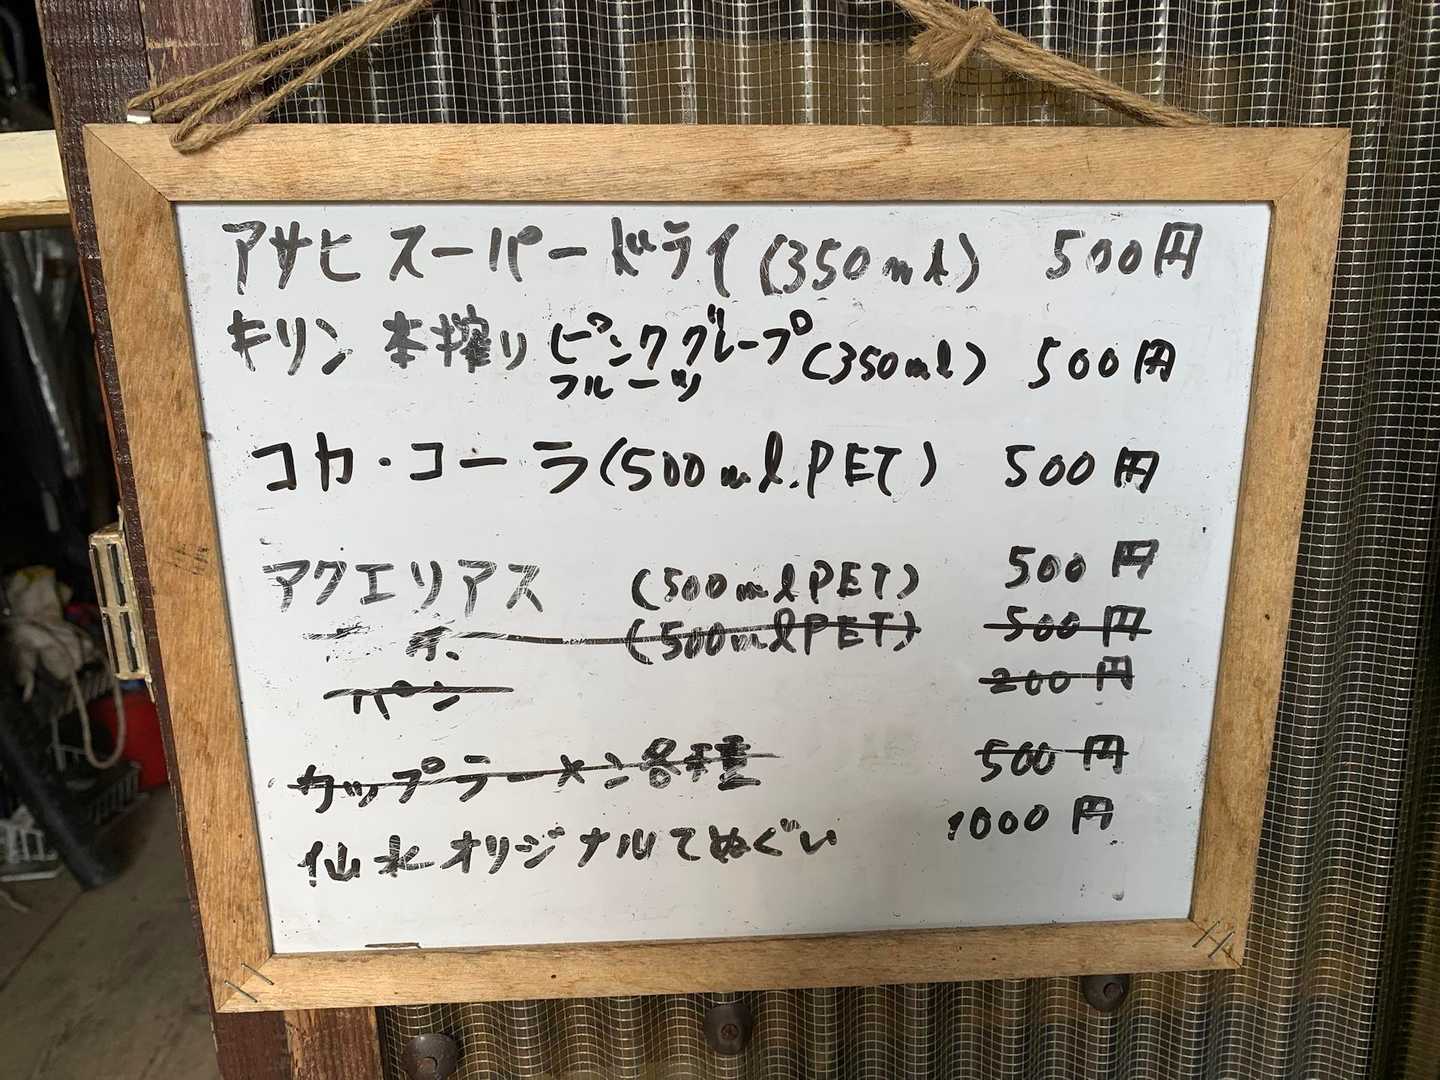 アサヒ スーパードライ (350ml) 500円
キリン 本搾り ピンクグレープフルーツ (350ml) 500円
コカ・コーラ (500ml.PET) 500円
アクエリアス (500mlPET) 500円
茶 (500mlPET) 500円
パン 200円
カップラーメン各種 500円
仙水オリジナルてぬぐい 1000円